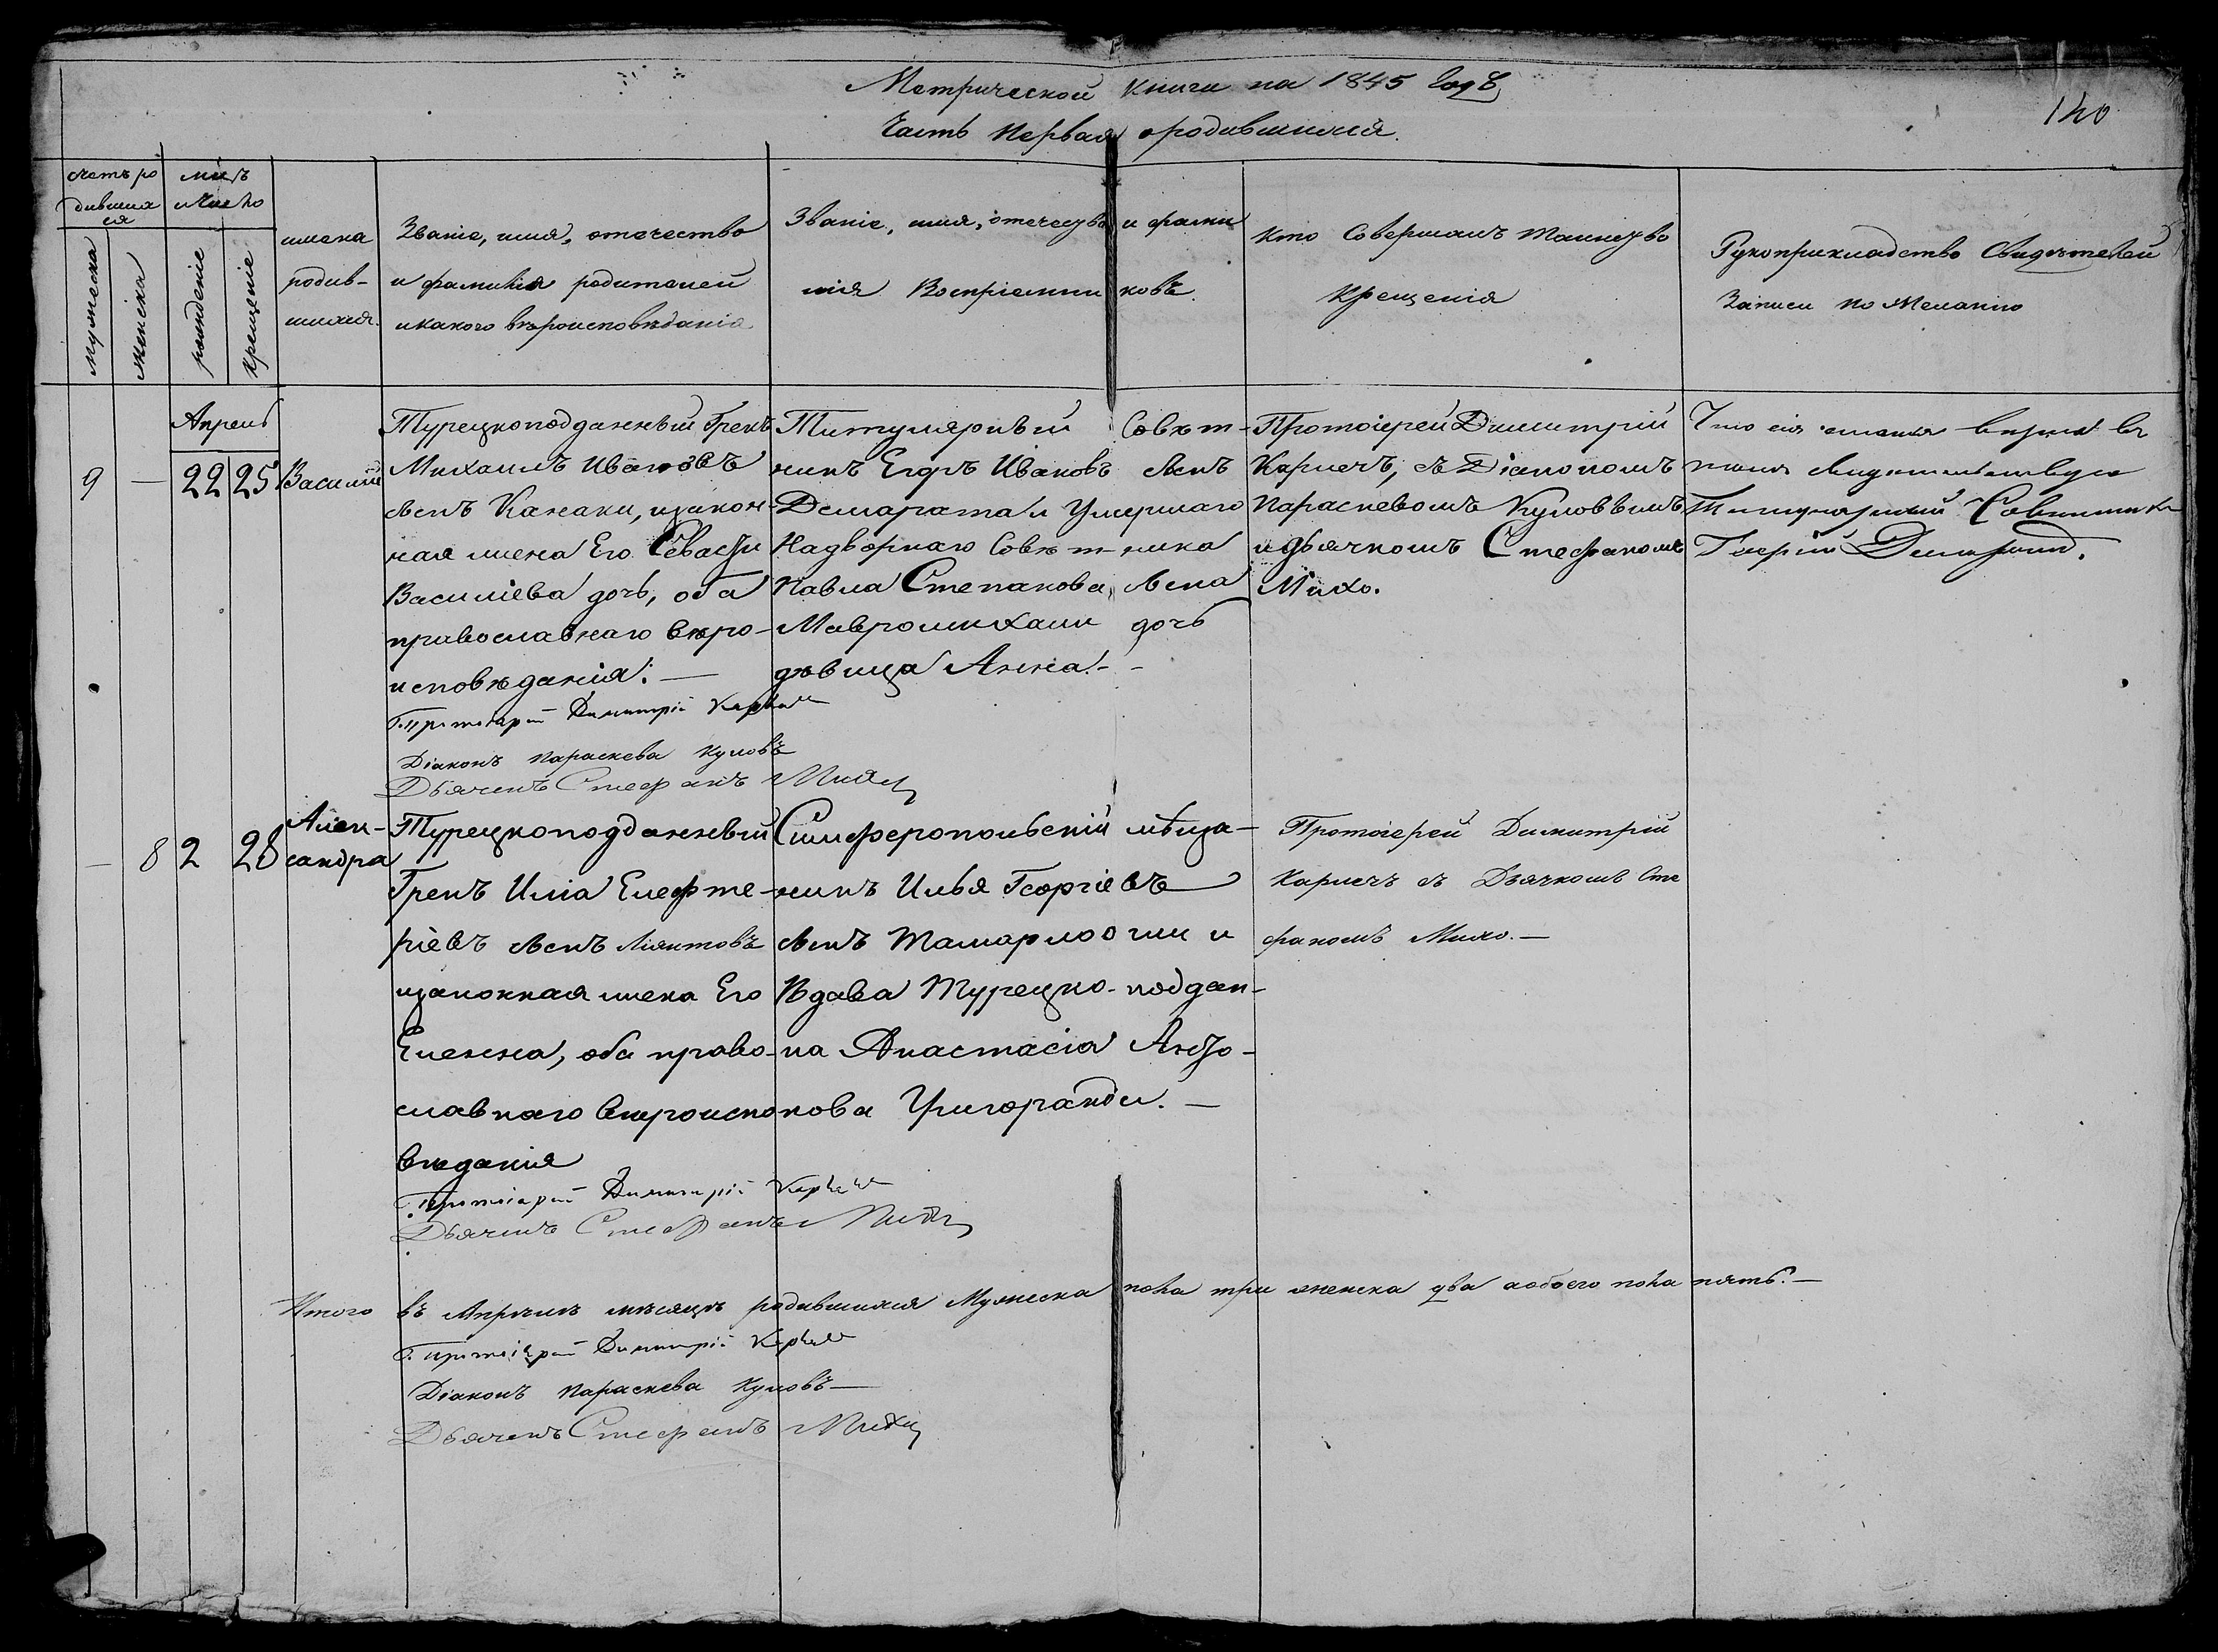 Метрической книги на 1845 годъ
140
Часть первая о родившихся.
счетъ ро
дивших
ся
мужеска
женска
мць
и число
рожденіе
крещеніе
имена
родив-
шихся.
Званіе, имя, отечество
и фамилія родителей
и какого вѣроисповѣданія
Званіе, имя, отечество и фами
лія Воспріемни ковъ.
Кто Совершалъ Таинство
Крещенія
Рукоприкладство Свидѣтелей
Записи по Желанію
Апрель
9 — 22 25 Василій
Турецкоподданный Грекъ
Михаилъ Ивановъ
сынъ Канаки, изакон-
ная жена Его Севасти
Василіева дочь, оба
православнаго вѣро-
исповѣданія: —
Протоіерей Димитрій
Діаконъ Параскева Куловъ
Дьячекъ Стефанъ
Титулярный Совѣт-
никъ Егоръ Ивановъ сынъ
Демарата и Умершаго
Надворнаго Совѣт- ника
Павла Степанова, сына
Мавромихали дочь
дѣвица Анна. - -
Протоіерей Димитрій
Карлечъ, съ Діакономъ
Параскевомъ Куловымъ
и дьячкомъ Стефаномъ
Михо.
Что сія
свидетельствую
Титулярный Советникъ
— 8 2 28 Алек-
сандра
Турецкоподданный
Грекъ Илія Елефте-
ріевъ сынъ
изаконная жена Его
Еленна, оба право-
славнаго вероиспо
веданія
Протоіерей Димитрій
Дьячекъ Стефанъ
Симферопольскій мѣща-
нинъ Илья Георгіевъ
сынъ и
Вдава Турецко-поддан-
на Анастасія Анто-
нова
Протоіерей Димитрій
Карлечъ съ Дьячкомъ Сте
фаномъ Михо. —
Итого въ Апрѣлѣ мѣсяцѣ родившихся Мужеска пола три женска два а обоего пола пять. —
Протоіерей Димитрій
Діаконъ Параскева Куловъ —
Дьячекъ Стефанъ